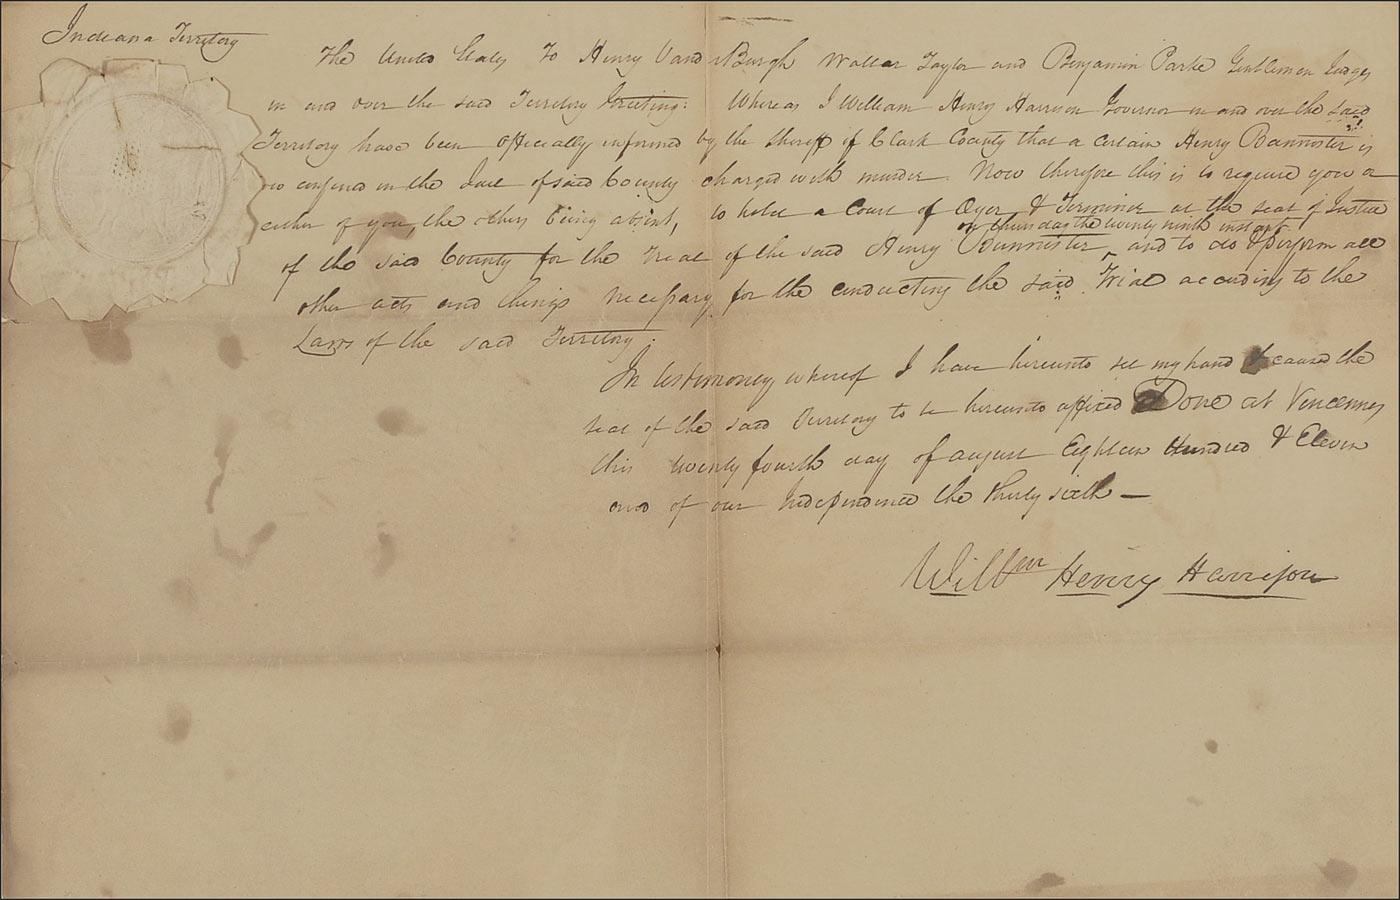 Indiana Territory
The United States To Henry Vander Burgh Waller Taylor and Benjamin Parke Gentlemen Judges
in and over the said Territory Greeting: Whereas I William Henry Harrison Governor in and over the said
Territory have been officially informed by the Sheriff of Clark County that a certain Henry Bannister is
now confined in the Jail of said County charged with murder. Now therefore this is to require you or
either of you, the others being absent, to hold a Court of Oyer & Terminer at the seat of Justice
on thursday the twenty ninth instant
of the said County for the trial of the said Henry Bannister, and to do & perform all
other acts and things necessary for the conducting the said Trial according to the
Laws of the said Territory.
In testimoney whereof I have hereunto set my hand & caused the
seal of the said Territory to be hereunto affixed Done at Vincennes
this twenty fourth day of august Eighteen Hundred & Eleven
and of our Independence the thirty sixth —
Willm Henry Harrison